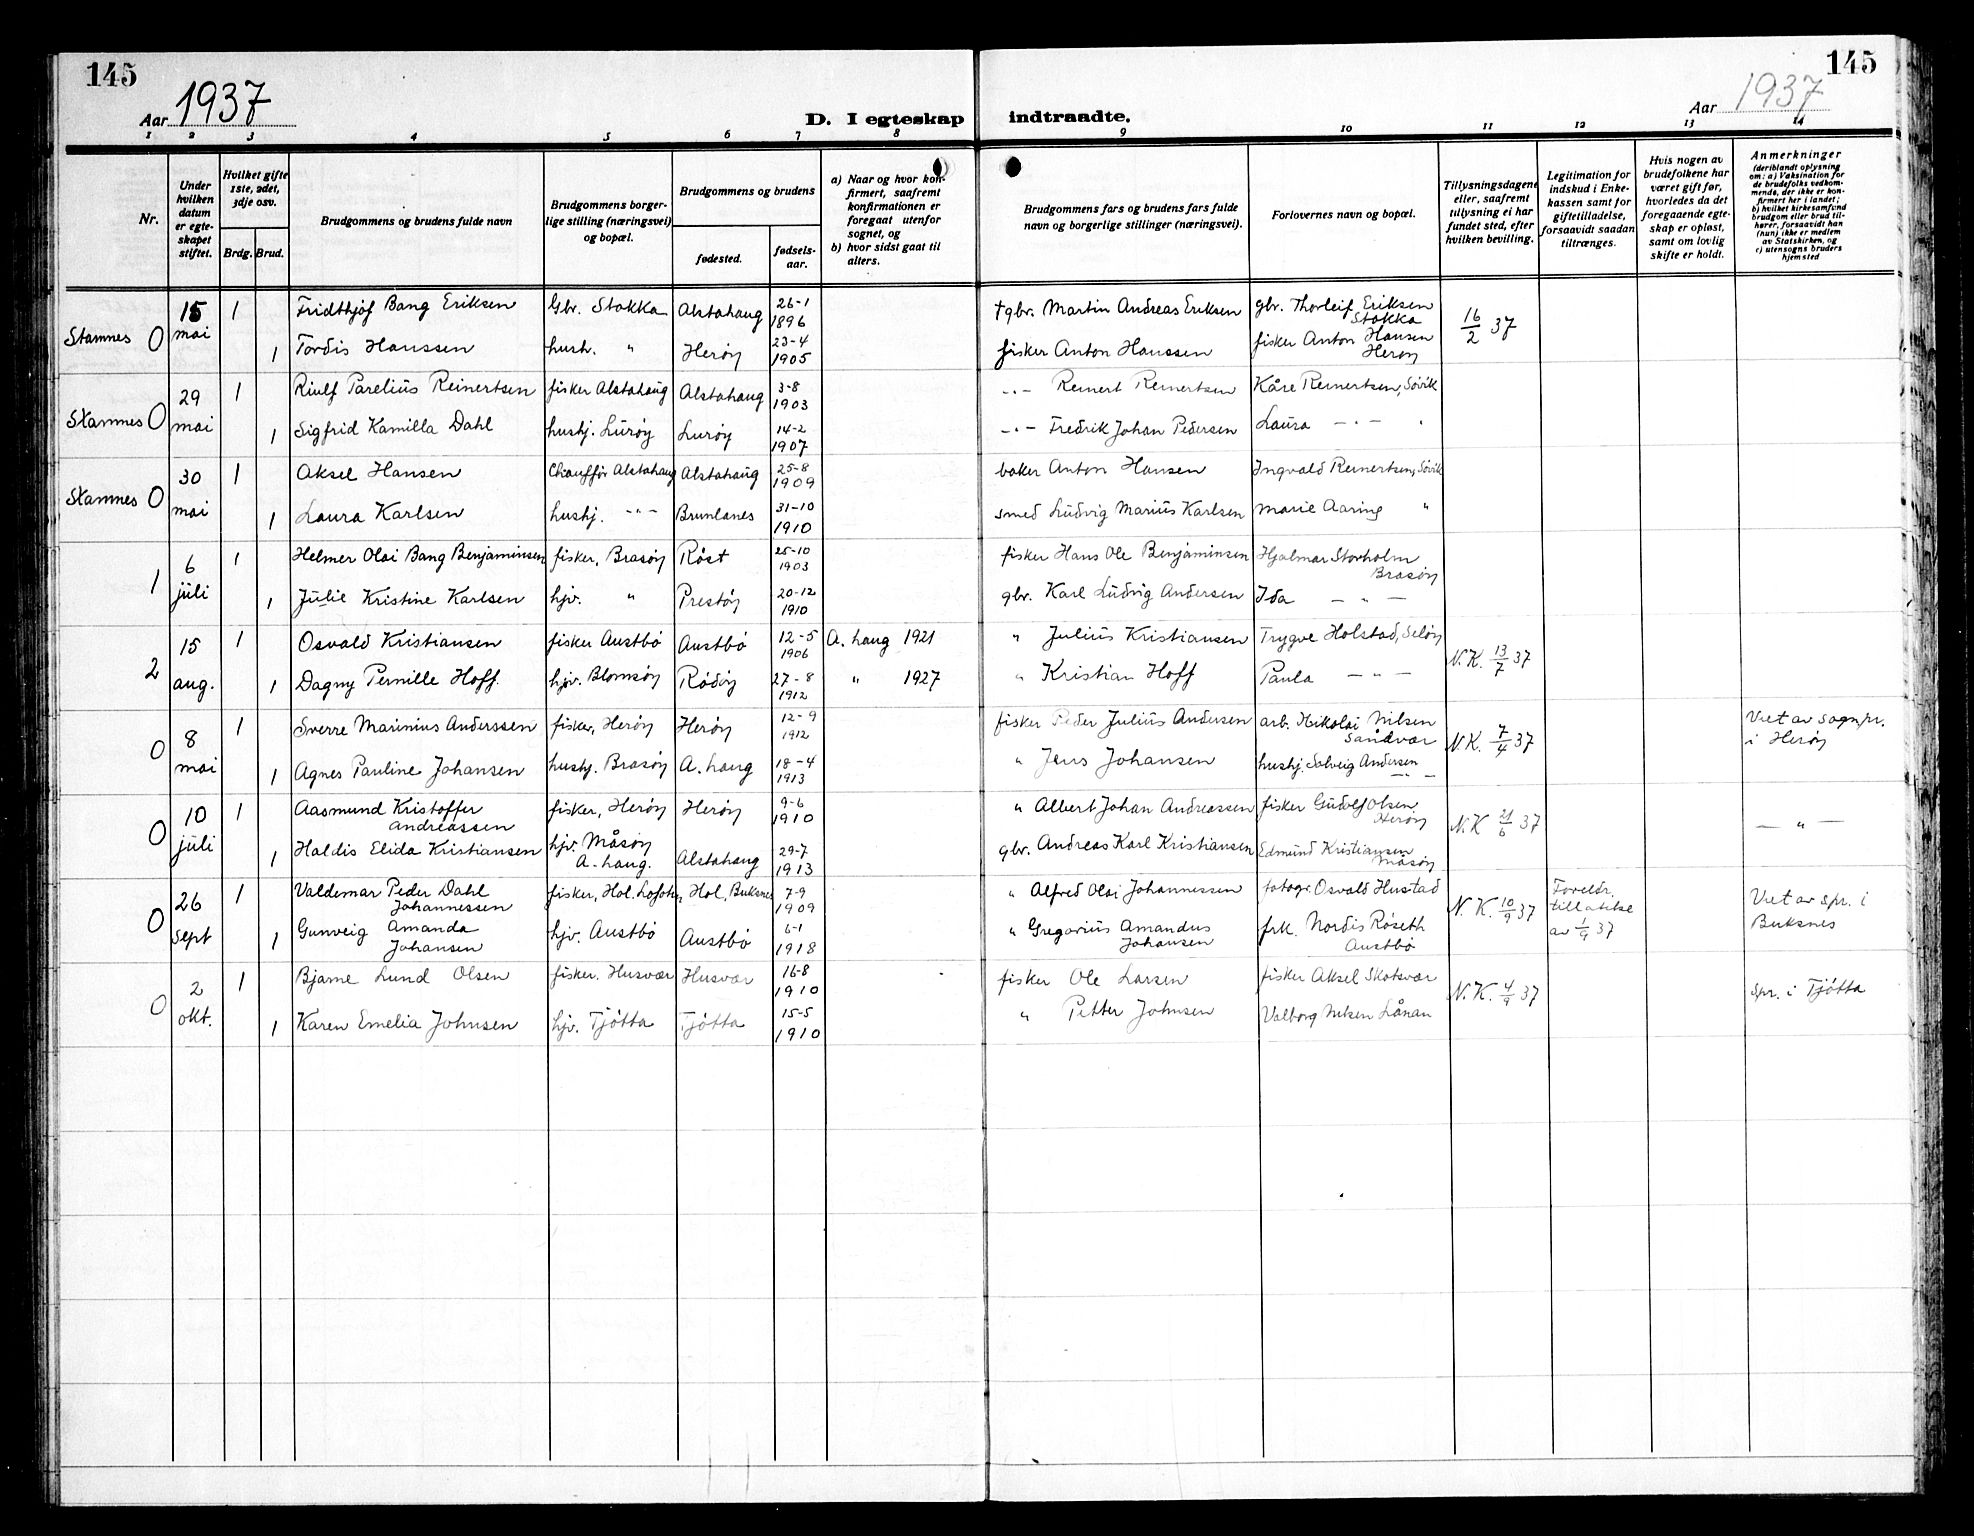 145
Aar 1937
D. I egteskap indtraadte.
Aar 1937
145
1 2 3 4 5 6 7 8 9 10 11 12 13 14
Nr.
Under hvilken datum er egteskapet stiftet.
Hvilket gifte 1ste, 2det, 3dje osv.
Brdg. Brud.
Brudgommens og brudens fulde navn
Brudgommens borgerlige stilling (næringsvei) og bopæl.
Brudgommens og brudens
fødested.
fødselsaar.
a) Naar og hvor konfirmert, saafremt konfirmationen er foregaat utenfor sognet, og
b) hvor sidst gaat til alters.
Brudgommens fars og brudens fars fulde navn og borgerlige stillinger (næringsvei).
Forlovernes navn og bopæl.
Tillysningsdagene eller, saafremt tillysning ei har fundet sted, efter hvilken bevilling.
Legitimation for indskud i Enkekassen samt for giftetilladelse, forsaavidt saadan tiltrænges.
Hvis nogen av brudefolkene har været gift før, hvorledes da det foregaaende egteskap er opløst, samt om lovlig skifte er holdt.
Anmerkninger (deriblandt oplysning om: a) Vaksination for de brudefolks vedkommende, der ikke er konfirmert her i landet; b) hvilket kirkesamfund brudgom eller brud tilhører, forsaavidt han (hun) ikke er medlem av Statskirken, og c) utensogns bruders hjemsted
Stamnes 0 15 mai 1 Fridthjof Bang Eriksen Gbr. Stokka Alstahaug 26-1 1896 †gbr. Martin Andreas Eriksen gbr. Thorleif Eriksen Stokka 16/2 37
1 Tordis Hanssen hush. " Herøy 23-4 1905 fisker Anton Hanssen fisker Anton Hansen Herøy
Stamnes 0 29 mai 1 Riulf Parelius Reinertsen fisker Alstahaug Alstahaug 3-8 1903 -"- Reinert Reinertsen Kåre Reinertsen, Søvik
1 Sigfrid Kamilla Dahl hushj. Lurøy Lurøy 14-2 1907 -"- Fredrik Johan Pedersen Laura -"- "
Stamnes 0 30 mai 1 Aksel Hansen Chauffør Alstahaug Alstahaug 25-8 1909 baker Anton Hansen Ingvald Reinertsen, Søvik
1 Laura Karlsen hushj. -"- Brunlanes 31-10 1910 smed Ludvig Marius Karlsen Marie Aaring "
1 6 juli 1 Helmer Olai Bang Benjaminsen fisker, Brasøy Røst 25-10 1903 fisker Hans Ole Benjaminsen Hjalmar Storholm Brasøy
1 Julie Kristine Karlsen hjv. " Prestøy 20-12 1910 gbr. Karl Ludvig Andersen Ida - " -
2 15 aug. 1 Osvald Kristiansen fisker Austbø Austbø 12-5 1906 A. haug 1921 " Julius Kristiansen Trygve Holstad, Seløy N.K. 13/7 37
1 Dagny Pernille Hoff. hjv. Blomsøy Rødøy 27-8 1912 " 1927 " Kristian Hoff Paula - " -
0 8 mai 1 Sverre Marinius Anderssen fisker, Herøy Herøy 12-9 1912 fisker Peder Julius Andersen arb. Nikolai Nilsen Sandvær N.K. 7/4 37 Viet av sognpr. i Herøy
1 Agnes Pauline Johansen hushj. Brasøy A. haug 18-4 1913 " Jens Johansen hushj. Solveig Andersen - " -
0 10 juli 1 Aasmund Kristoffer Andreassen fisker, Herøy Herøy 9-6 1910 " Albert Johan Andreassen fisker Gudolf Olsen Herøy N.K 21/6 37 - " -
1 Haldis Elida Kristiansen hjv. Måsøy A. haug. Alstahaug 29-7 1913 gbr. Andreas Karl Kristiansen Edmund Kristiansen Måsøy
0 26 sept 1 Valdemar Peder Dahl Johannessen fisker, Hol. Lofoten Hol, Buksnes 7-9 1909 " Alfred Olai Johannessen fotogr. Osvald Hustad N.K. 10/9 37 Foreldr. tillatelse av 1/9 37 Viet av spr. i Buksnes
1 Gunveig Amanda Johansen hjv. Austbø Austbø 6-1 1918 " Gregorius Amandus Johansen frk. Nordis Røseth Austbø
0 2 okt. 1 Bjarne Lund Olsen fisker. Husvær Husvær 16-8 1910 fisker Ole Larsen fisker Aksel Skotsvær N.K. 4/9 37 spr. i Tjøtta
1 Karen Emelia Johnsen hjv. Tjøtta Tjøtta 15-5 1910 " Petter Johnsen Valborg Nilsen Lånan